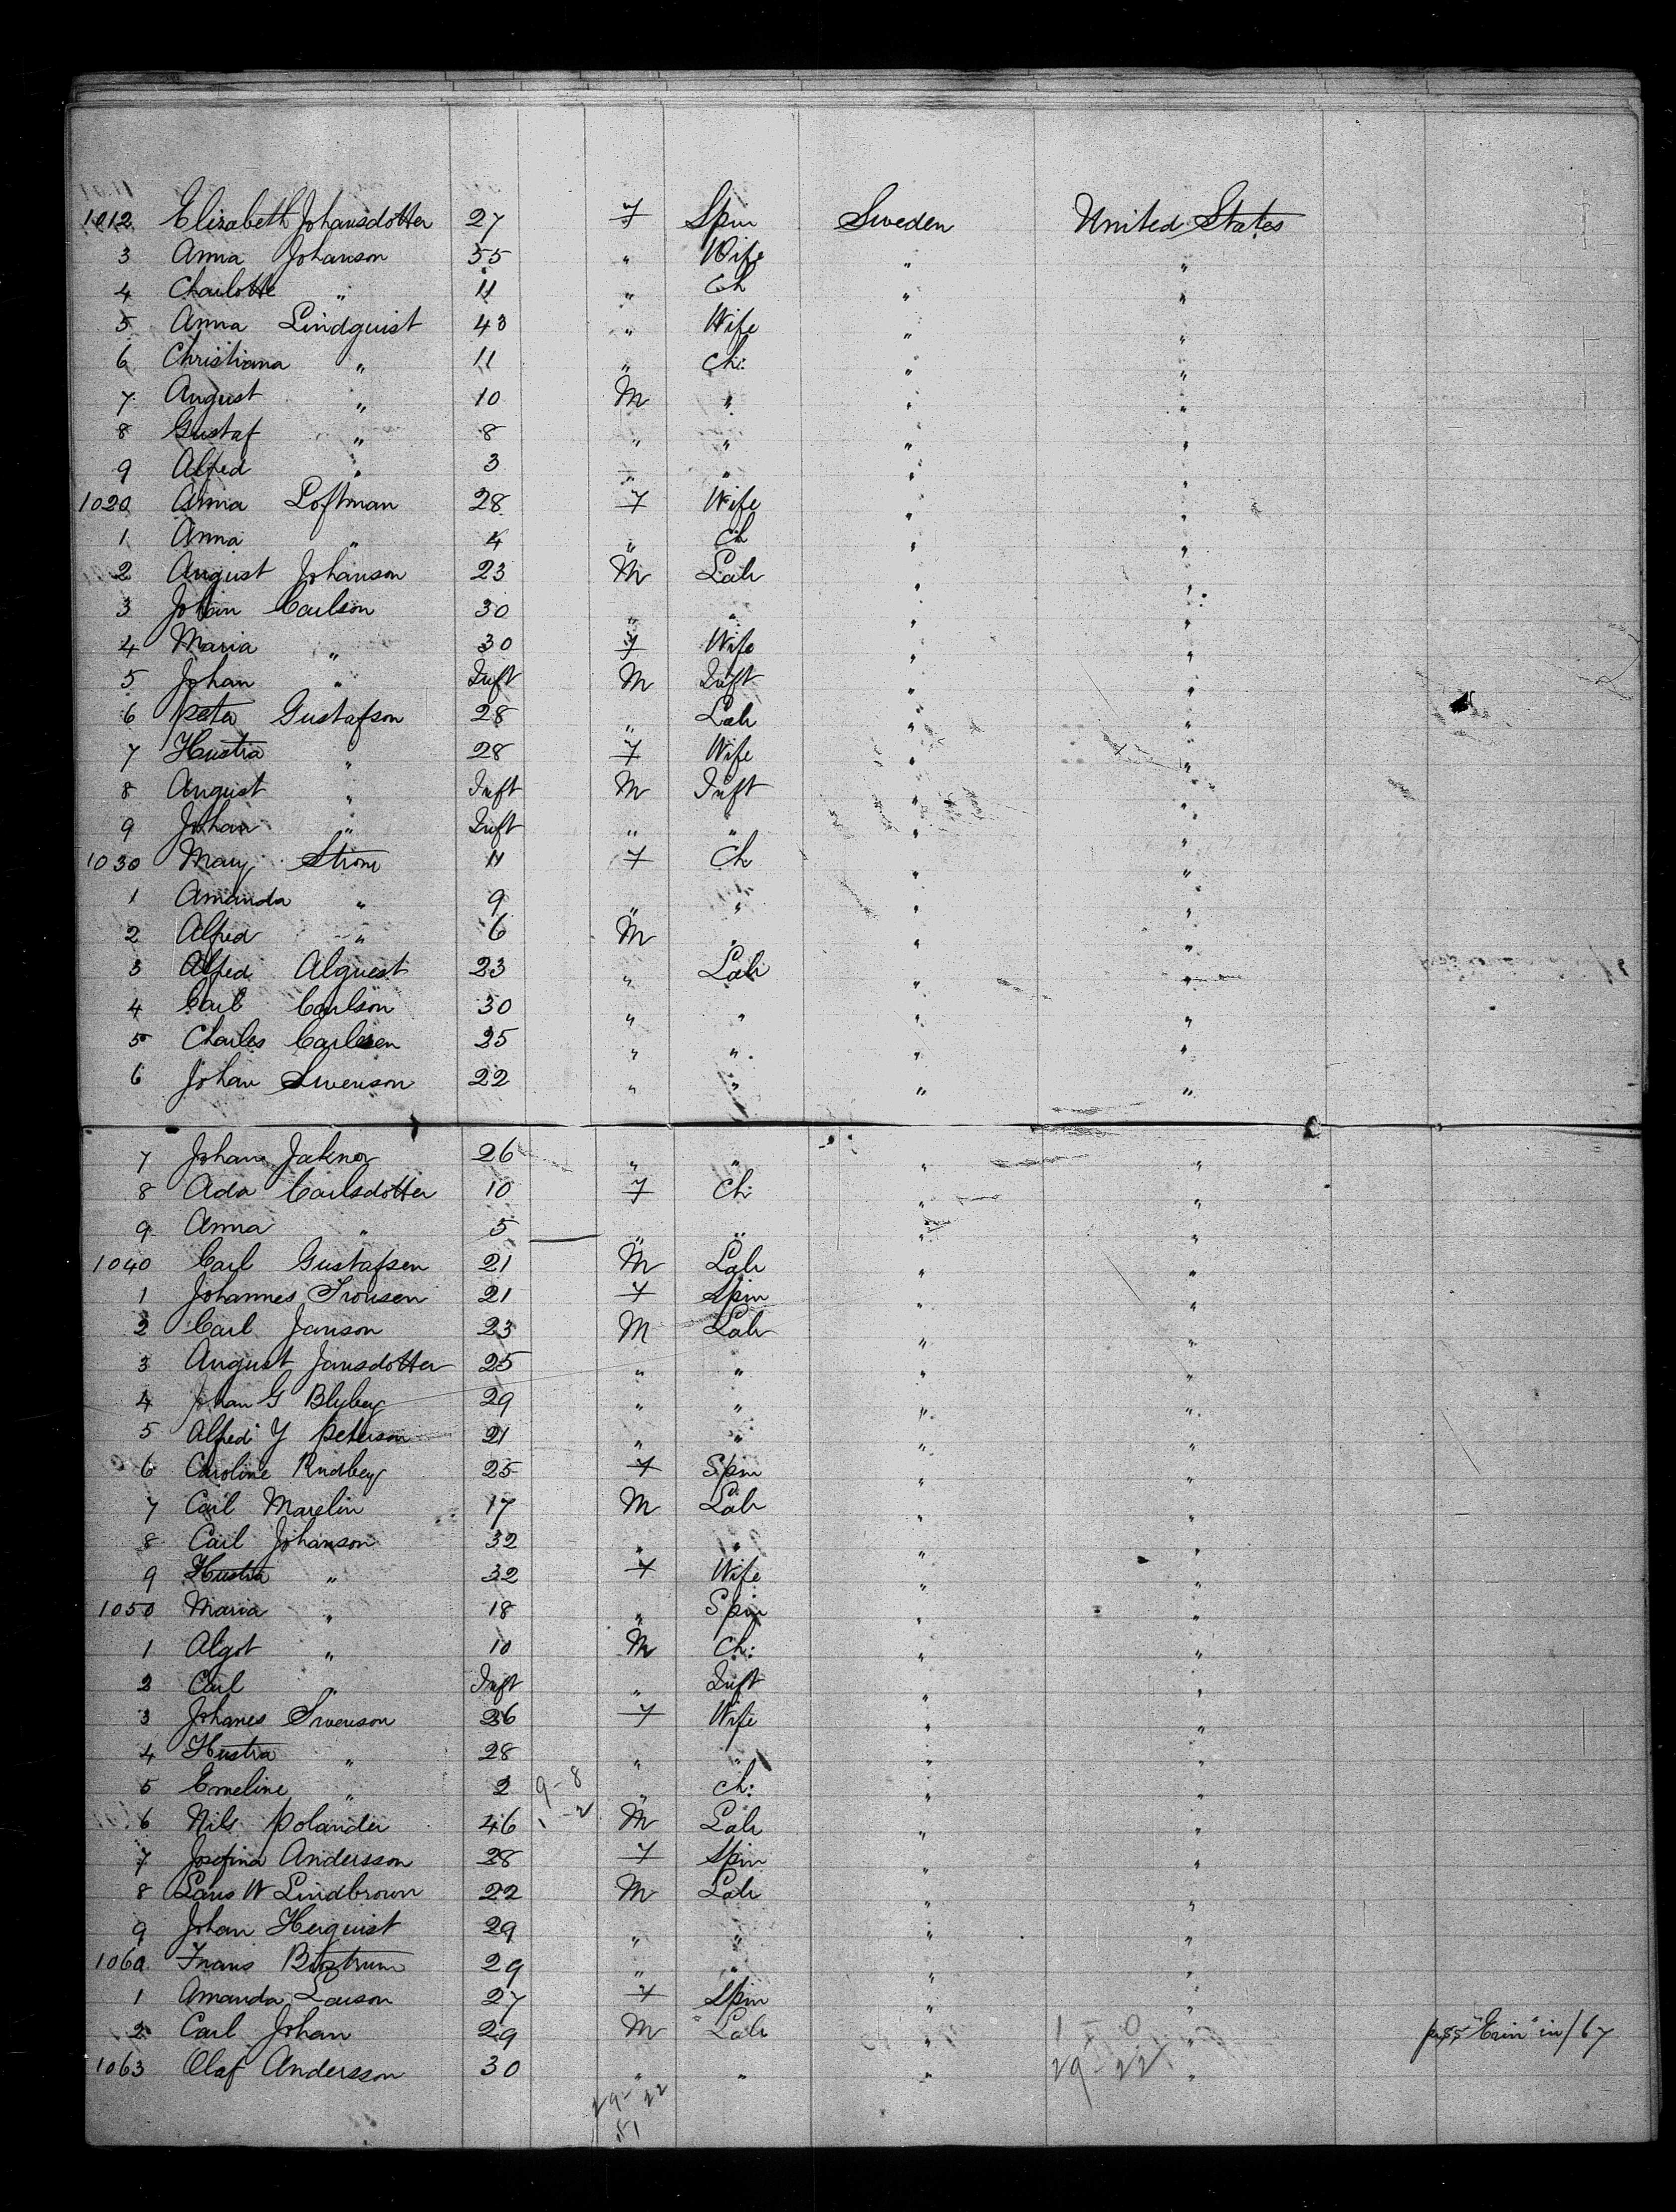 1012 Elizabeth Johansdotter 27 F Spin Sweden United States
3 Anna Johanson 55 " Wife " "
4 Charlotte " 11 " Ch " "
5 Anna Lindquist 43 " Wife " "
6 Christiana " 11 " Ch: " "
7 August " 10 M " " "
8 Gustaf " 8 " " " "
9 Alfred " 3 " " " "
1020 Anna Loftman 28 F Wife " "
1 Anna " 4 " Ch " "
2 August Johanson 23 M Lab " "
3 Johan Carlson 30 " " " "
4 Maria " 30 F Wife " "
5 Johan " Inft M Inft " "
6 Peter Gustafson 28 " Lab " "
7 Hustra " 28 F Wife " "
8 August " Inft M Inft " "
9 Johan " Inft " " " "
1030 Mary Strom 11 F Ch " "
1 Amanda " 9 " " " "
2 Alfred " 6 M " " "
3 Alfred Alquest 23 " Lab " "
4 Carl Carlson 30 " " " "
5 Charles Carlsen 25 " " " "
6 Johan Swenson 22 " " " "
7 Johan 26 " " " "
8 Ada Carlsdotter 10 F Ch: " "
9 Anna " 5 " " " "
1040 Carl Gustafsen 21 M Lab " "
1 Johannes 21 F Spin " "
2 Carl Janson 23 M Lab " "
3 August Jansdotter 25 " " " "
4 Johan G Blyberg 29 " " " "
5 Alfred Y Peterson 21 " " " "
6 Caroline Rudberg 25 F Spin " "
7 Carl Marelin 17 M Lab " "
8 Carl Johanson 32 " " " "
9 Hustra " 32 F Wife " "
1050 Maria " 18 " Spin " "
1 Algot " 10 M Ch: " "
2 Carl " Inft " Inft " "
3 Johanes Swenson 26 F Wife " "
4 Hustra " 28 " " " "
5 Emeline " 2 9-8 " Ch: " "
6 Nils Polander 46 1-2 M Lab " "
7 Josefina Andersson 28 F Spin " "
8 Lars W Lindbrown 22 M Lab " "
9 Johan Herquist 29 " " " "
1060 Frans Bostrum 29 " " " "
1 Amanda Larson 27 F Spin " "
2 Carl Johan 29 M Lab " " pr SS "Erin" in/67
1063 Olaf Andersson 30 " " " "
29-22
29-22
51